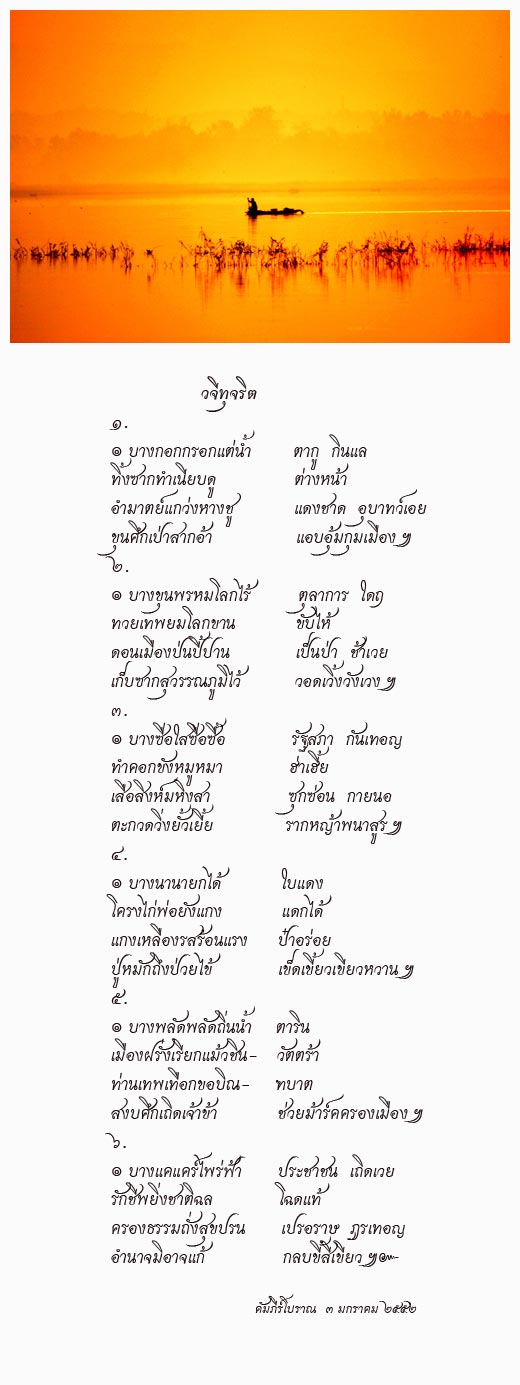 วจีทุจริต
๑.
๏ บางกอกกรอกแต่น้ำ ตากู กินแล
ทิ้งซากทำเนียบดู ต่างหน้า
อำมาตย์แกว่งหางชู แดงชาด อุบาทว์เอย
ขุนศึกเป่าสากอ้า แอบอุ้มกุมเมือง ๆ
๒.
๏ บางขุนพรหมโลกไร้ ตุลาการ ใดฤ
ทวยเทพยมโลกขาน ขับไห้
ดอนเมืองป่นปี้ปาน เป็นป่า ช้าเวย
เก็บซากสุวรรณภูมิไว้ วอดเวิ้งวังเวง ๆ
๓.
๏ บางซื่อใสซื่อซื้อ รัฐสภา กันเทอญ
ทำคอกขังหมูหมา ฮ่าเฮี้ย
เสือสิงห์มหิงสา ซุกซ่อน กายนอ
ตะกวดวิ่งยั้วเยี้ย รากหญ้าพนาสูร ๆ
๔.
๏ บางนานายกได้ ใบแดง
โครงไก่พ่อยังแกง แดกได้
แกงเหลืองรสร้อนแรง ป๋าอร่อย
ปู่หมักถึงป่วยไข้ เข็ดเขี้ยวเขียวหวาน ๆ
๕.
๏ บางพลัดพลัดถิ่นน้ำ ตาริน
เมืองฝรั่งเรียกแม้วชิน- วัตตร้า
ท่านเทพเทือกขอบิณ- ฑบาต
สงบศึกเถิดเจ้าข้า ช่วยม้าร์คครองเมือง ๆ
๖.
๏ บางแคแคร์ไพร่ฟ้า ประชาชน เถิดเวย
รักชีพยิ่งชาติฉล โฉดแท้
ครองธรรมถั่งสุขปรน เปรอราษ ฎรเทอญ
อำนาจมิอาจแก้ กลบขี้สีเขียว ๆ๛
คัมภีร์โบราณ ๓ มกราคม ๒๕๕๒